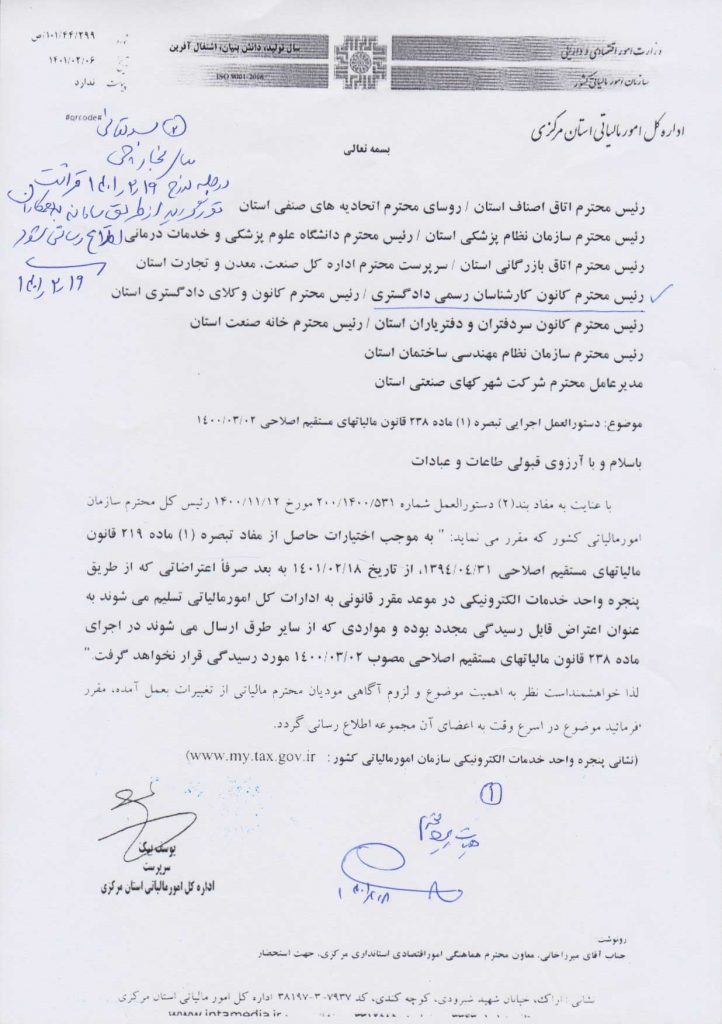 وزارت امور اقتصادی و دارایی
سازمان امور مالیاتی کشور
سال تولید، دانش بنیان، اشتغال آفرین
ISO 9001:2008
۱۰۱/۴۴۲۹۹/ص
۱۴۰۱/۰۲/۰۶
ندارد
#qrcode#
اداره کل امور مالیاتی استان مرکزی
بسمه تعالی
رئیس محترم اتاق اصناف استان / روسای محترم اتحادیه های صنفی استان
رئیس محترم سازمان نظام پزشکی استان / رئیس محترم دانشگاه علوم پزشکی و خدمات درمانی
رئیس محترم اتاق بازرگانی استان / سرپرست محترم اداره کل صنعت، معدن و تجارت استان
رئیس محترم کانون کارشناسان رسمی دادگستری / رئیس محترم کانون وکلای دادگستری استان
رئیس محترم کانون سردفتران و دفتریاران استان / رئیس محترم خانه صنعت استان
رئیس محترم سازمان نظام مهندسی ساختمان استان
مدیرعامل محترم شرکت شهرکهای صنعتی استان
موضوع: دستورالعمل اجرایی تبصره (۱) ماده ۲۳۸ قانون مالیاتهای مستقیم اصلاحی ۱۴۰۰/۰۳/۰۲
باسلام و با آرزوی قبولی طاعات و عبادات
با عنایت به مفاد بند(۲) دستورالعمل شماره ۲۰۰/۱۴۰۰/۵۳۱ مورخ ۱۴۰۰/۱۱/۱۲ رئیس کل محترم سازمان
امورمالیاتی کشور که مقرر می نماید: " به موجب اختیارات حاصل از مفاد تبصره (۱) ماده ۲۱۹ قانون
مالیاتهای مستقیم اصلاحی ۱۳۹۴/۰۴/۳۱، از تاریخ ۱۴۰۱/۰۲/۱۸ به بعد صرفاً اعتراضاتی که از طریق
پنجره واحد خدمات الکترونیکی در موعد مقرر قانونی به ادارات کل امورمالیاتی تسلیم می شوند به
عنوان اعتراض قابل رسیدگی مجدد بوده و مواردی که از سایر طرق ارسال می شوند در اجرای
ماده ۲۳۸ قانون مالیاتهای مستقیم اصلاحی مصوب ۱۴۰۰/۰۳/۰۲ مورد رسیدگی قرار نخواهد گرفت."
لذا خواهشمنداست نظر به اهمیت موضوع و لزوم آگاهی مودیان محترم مالیاتی از تغییرات بعمل آمده، مقرر
فرمائید موضوع در اسرع وقت به اعضای آن مجموعه اطلاع رسانی گردد.
(نشانی پنجره واحد خدمات الکترونیکی سازمان امورمالیاتی کشور : www.my.tax.gov.ir)
یوسف بیگ
سرپرست
اداره کل امورمالیاتی استان مرکزی
رونوشت
جناب آقای میرزاخانی، معاون محترم هماهنگی اموراقتصادی استانداری مرکزی، جهت استحضار
نشانی : اراک، خیابان شهید شیرودی، کوچه کندی، کد ۷۹۳۷-۳-۳۸۱۹۷ اداره کل امور مالیاتی استان مرکزی
www.intamedia.ir